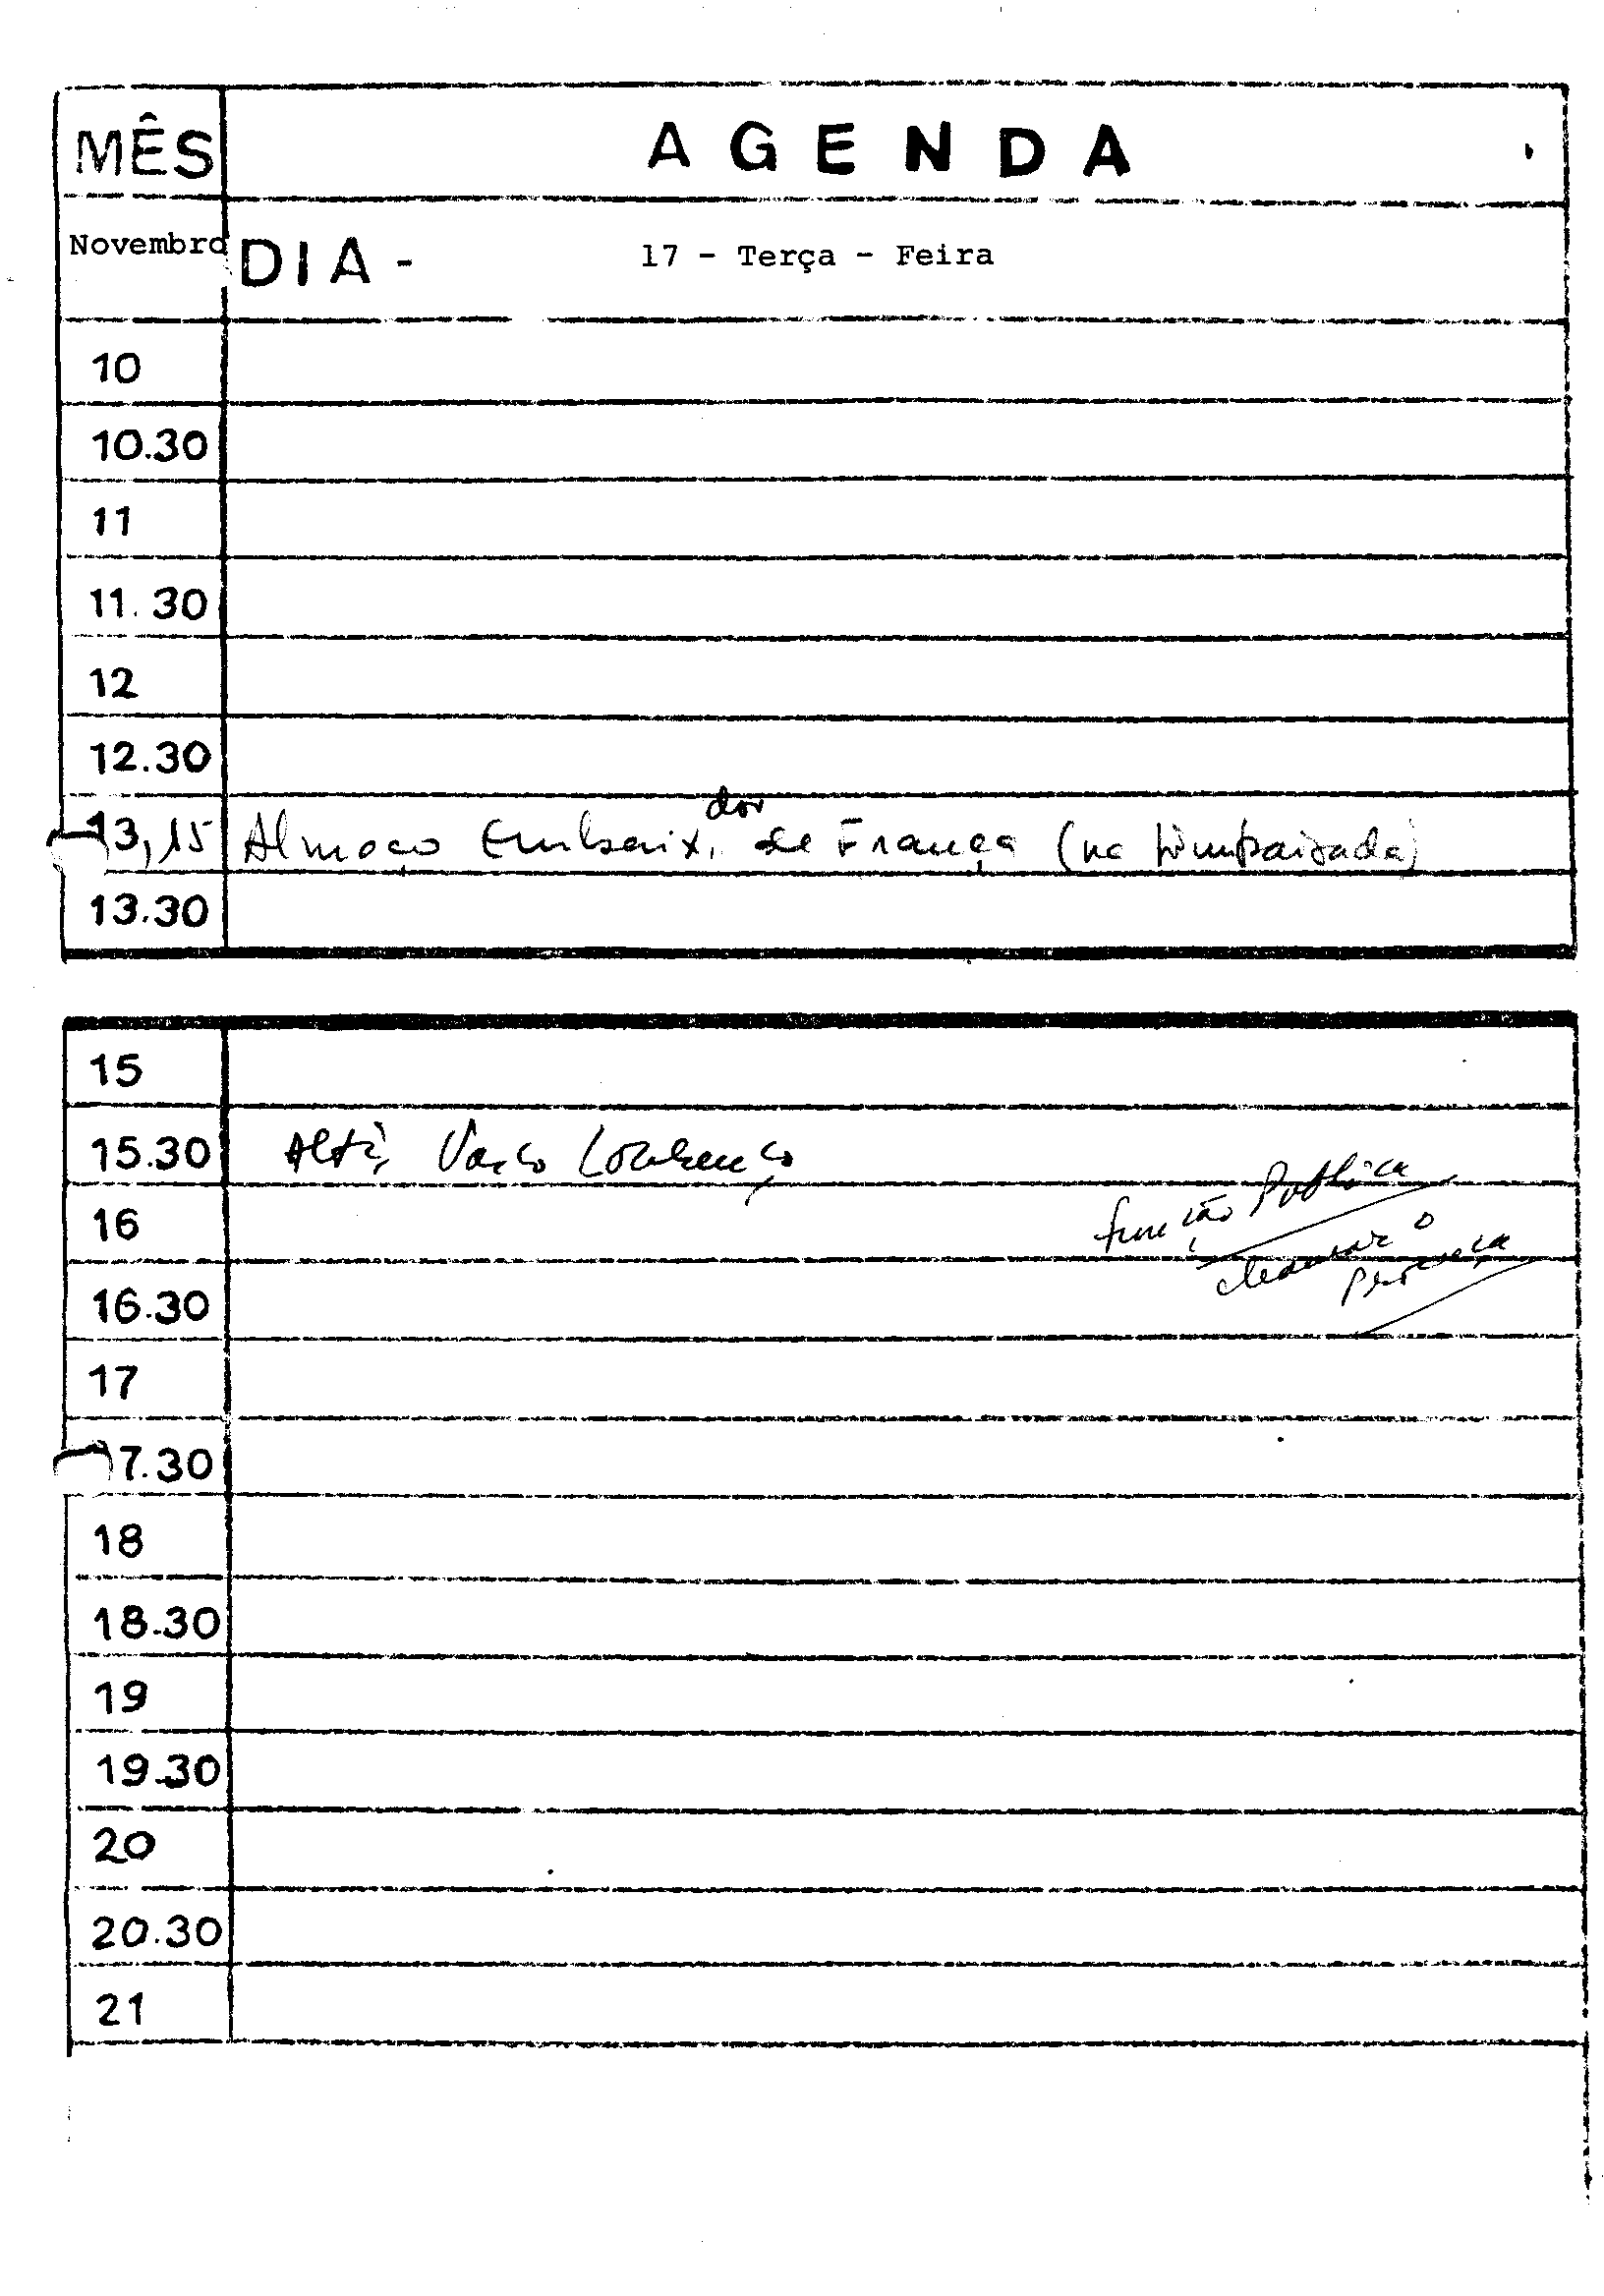 MÊS AGENDA
Novembro DIA - 17 - Terça - Feira
10
10.30
11
11.30
12
12.30
dor
13,15 Almoço Embaix. de França (na Embaixada)
13.30
15
15.30 Vasco Lourenço
Função Pública
16
o
16.30
17
7.30
18
18.30
19
19.30
20
20.30
21